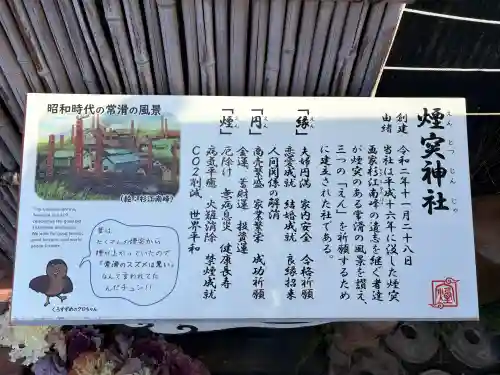 煙突神社
えんとつじんじゃ
創建 令和二年十一月二十八日
由緒 当社は平成十六年に没した煙突
画家杉江南峰の遺志を継ぐ者達
が煙突のある常滑の風景を讃え、
三つの『えん』を祈願するため
に建立された社である。
「縁」えん
夫婦円満 家内安全 合格祈願
恋愛成就 結婚成就 良縁招来
人間関係の解消
「円」えん
商売繁盛 家業繁栄 成功祈願
金運 蓄財運 投資運
「煙」えん
厄除け 無病息災 健康長寿
病気平癒 火難消除 禁煙成就
CO2削減 世界平和
昭和時代の常滑の風景
(絵：杉江南峰)
昔は
たくさんの煙突から
煙が上がっていたので
「常滑のスズメは黒い」
なんて言われてた
んだチュン!!
くろすずめのクロちゃん
煙